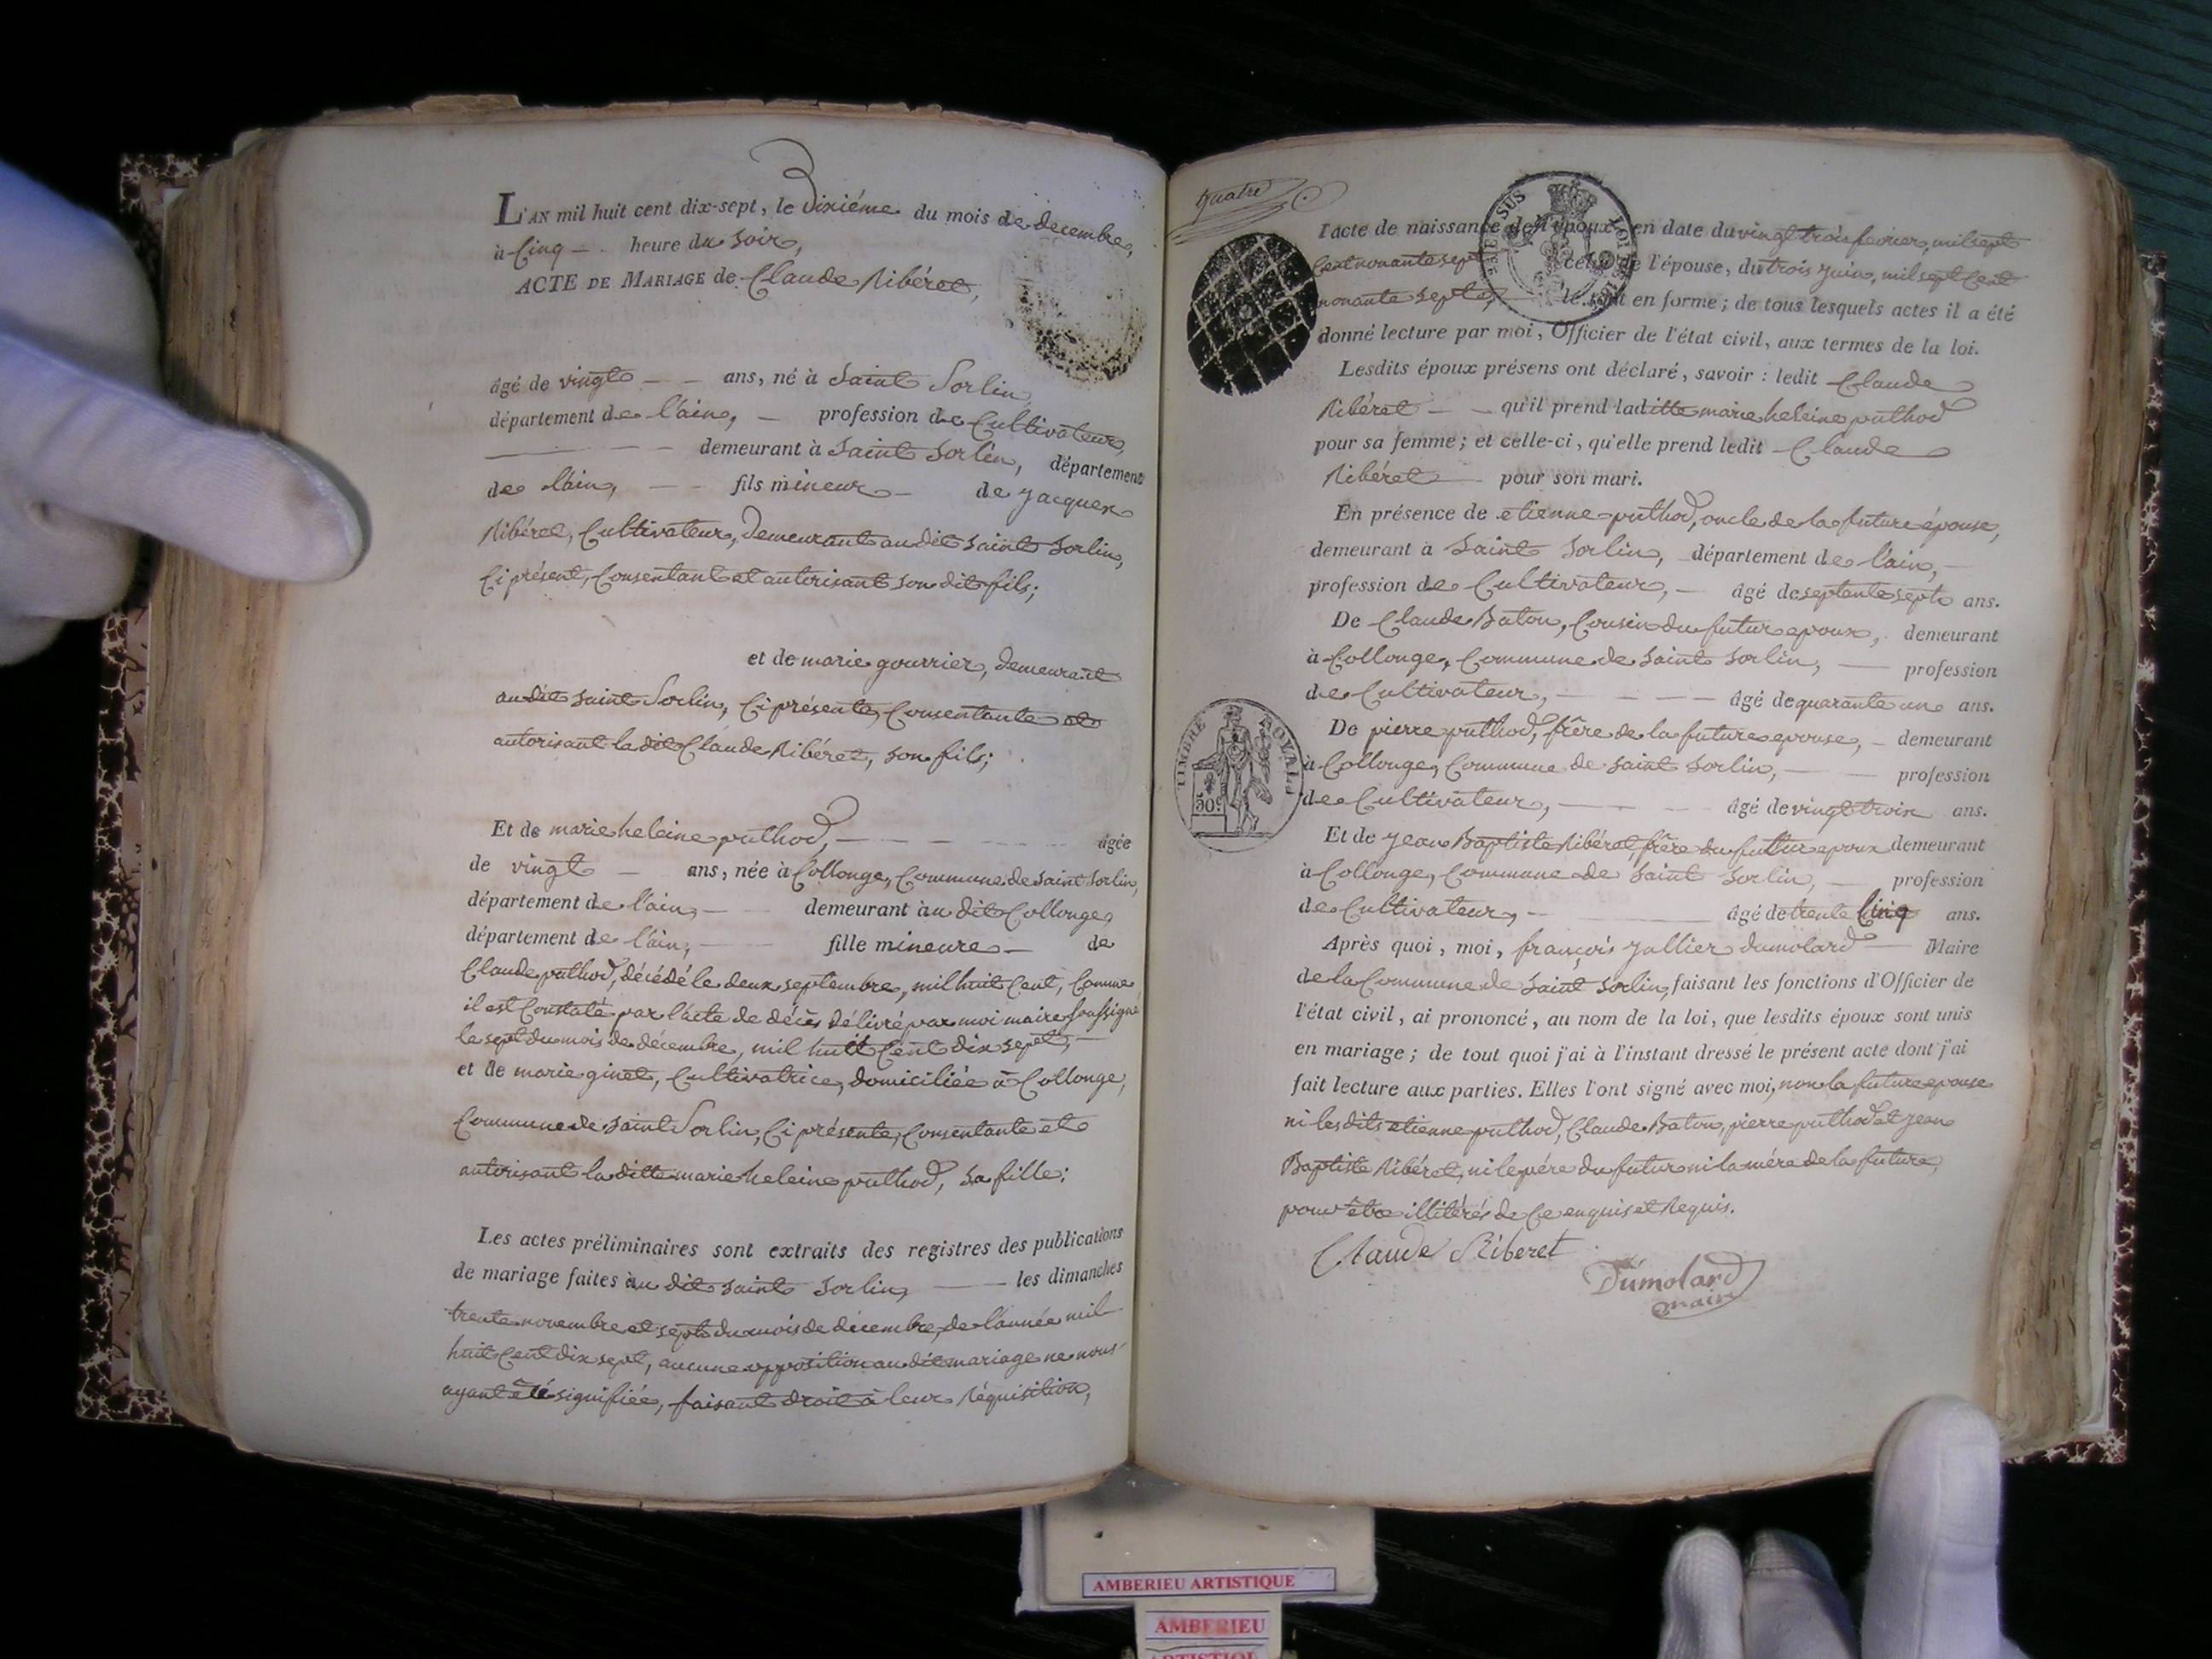 L'AN mil huit cent dix-sept, le Dixiéme du mois de decembre,
à Cinq heure du Soir,
ACTE DE MARIAGE de Claude Ribéret,
âgé de vingt ans, né à Saint Sorlin
département de l'ain, profession de Cultivateur,
demeurant à Saint Sorlin, département
de l'ain, fils mineur de jacques
Ribéret, Cultivateur, Demeurant au dit Saint Sorlin,
Ci présent, Consentant et autorisant son dit fils;
et de marie gourrier, demeurant
au dit Saint Sorlin, Ci présente, Consentante et
autorisant le dit Claude Ribéret, son fils;
Et de marie heleine puthod, âgée
de vingt ans, née à Collonge, Commune de Saint Sorlin,
département de l'ain, demeurant àu dit Collonge,
département de l'ain, fille mineure de
Claude puthod, décédé le deux septembre, mil huit Cent, Comme
il est Constaté par l'acte de décès délivré par moi maire Soussigné
le sept du mois de décembre, mil huit Cent dix sept,
et de marie ginet, Cultivatrice, domiciliée à Collonge,
Commune de Saint Sorlin, Ci présente, Consentante et
autorisant la ditte marie heleine puthod, sa fille;
Les actes préliminaires sont extraits des registres des publications
de mariage faites àu dit Saint Sorlin, les dimanches
trente novembre et sept du mois de décembre, de l'année mil
huit Cent dix sept, aucune opposition au dit mariage ne nous
ayant été signifiée, faisant droit à leur Réquisition,
quatre
l'acte de naissance de l'époux en date du vingt trois fevrier, mil sept
Cent nonante sept celui de l'épouse, du trois juin, mil sept Cent
nonante sept, le tout en forme; de tous lesquels actes il a été
donné lecture par moi, Officier de l'état civil, aux termes de la loi.
Lesdits époux présens ont déclaré, savoir : ledit Claude
Ribéret qu'il prend laditte marie heleine puthod
pour sa femme; et celle-ci, qu'elle prend ledit Claude
Ribéret pour son mari.
En présence de etienne puthod, oncle de la future épouse,
demeurant à Saint Sorlin, département de l'ain,
profession de Cultivateur, âgé de septante sept ans.
De Claude Baton, Cousin du futur epoux, demeurant
à Collonge, Commune de Saint Sorlin, profession
de Cultivateur, âgé de quarante un ans.
De pierre puthod, frère de la future epouse, demeurant
à Collonge, Commune de Saint Sorlin, profession
de Cultivateur, âgé de vingt trois ans.
Et de jean Baptiste Ribéret, frère du futtur epoux demeurant
à Collonge, Commune de Saint Sorlin, profession
de Cultivateur, âgé de trente Cinq ans.
Après quoi, moi, françois jullier dumolard Maire
de la Commune de Saint Sorlin, faisant les fonctions d'Officier de
l'état civil, ai prononcé, au nom de la loi, que lesdits époux sont unis
en mariage; de tout quoi j'ai à l'instant dressé le présent acte dont j'ai
fait lecture aux parties. Elles l'ont signé avec moi, non la future epouse
ni les dits etienne puthod, Claude Baton, pierre puthod et jean
Baptiste Ribéret, ni le père du futur ni la mère de la future,
pour être illitérés de Ce enquis et Requis.
Claude Riberet
Dumolard
maire
TIMBRE ROYAL
50c
AMBERIEU ARTISTIQUE
AMBERIEU
ARTISTIQUE